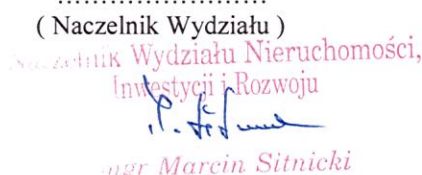 ........................
( Naczelnik Wydziału )
Naczelnik Wydziału Nieruchomości,
Inwestycji i Rozwoju
mgr Marcin Sitnicki